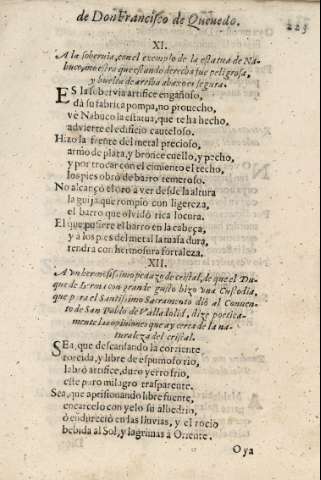 de Don Francisco de Quevedo.
223
XI.
A la sobervia, con el exemplo de la estatua de Na-
buco, muestra que estando derecha fue peligrosa,
y buelta de arriba abaxo es segura.
ES la sobervia artifice engañoso,
dà su fabrica pompa, no provecho,
vè Nabuco la estatua, que te ha hecho,
advierte el edificio cauteloso.
Hizo la frente del metal precioso,
armò de plata, y bronce cuello, y pecho,
y por trocar con el cimiento el techo,
los pies obrò de barro temeroso.
No alcançò el oro à ver desde la altura
la guija que rompiò con ligereza,
el barro que olvidò rica locura.
El que pusiere el barro en la cabeça,
y à los pies del metal la tassa dura,
tendrà con hermosura fortaleza.
XII.
A un hermosissimo pedaço de cristal, de que el Du-
que de Lerma con grande gusto hizo una Custodia,
que para el Santissimo Sacramento diò al Conuen-
to de San Pablo de Valladolid, dize poetica-
mente las opiniones que ay cerca de la na-
turaleza del cristal.
SEa, que descansando la corriente
torcida, y libre de espumoso rio,
labrò artifice, duro yerro frio,
este puro milagro trasparente.
Sea, que aprisionando libre fuente,
encarcelò con yelo su albedrio,
ò endureciò en las lluvias, y el rocio
bebida al Sol, y lagrimas à Oriente.
O ya